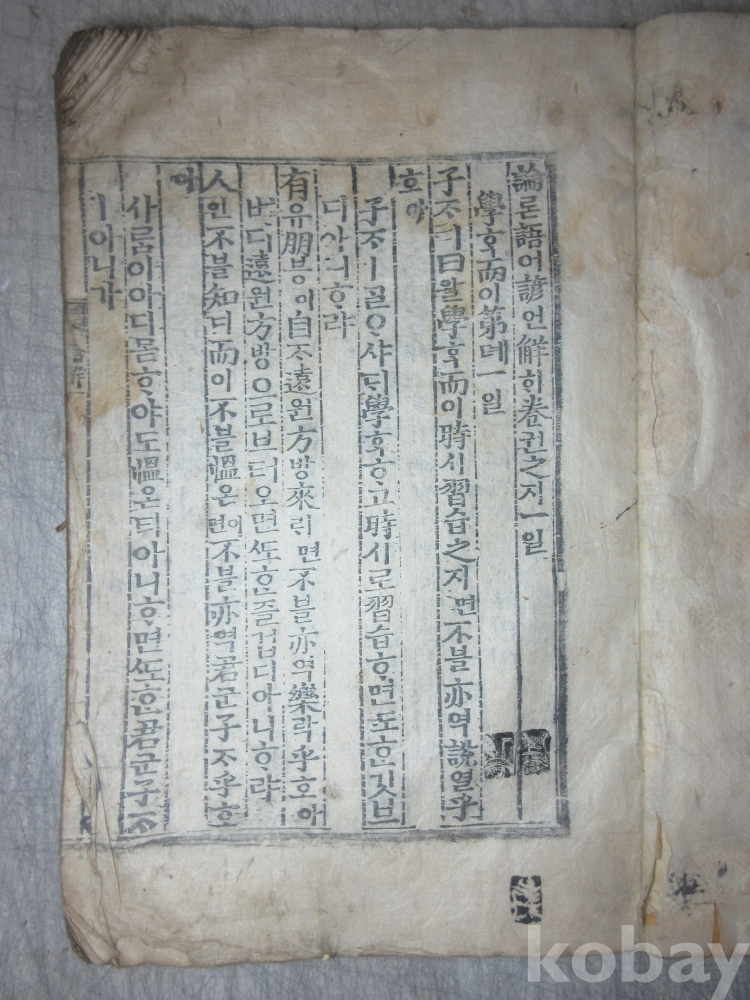 論론語어諺언解ᄒᆡ卷권之지一일
學ᄒᆞᆨ而이第뎨一일
子ᄌᆞㅣ曰왈學ᄒᆞᆨ而이時시習습之지면不블亦역說열乎
호아
子ᄌᆞㅣᄀᆞᆯᄋᆞ샤ᄃᆡ學ᄒᆞᆨᄒᆞ고時시로習습ᄒᆞ면ᄯᅩᄒᆞᆫ깃브
디아니ᄒᆞ랴
有유朋븡이自ᄌᆞ遠원方방來ᄅᆡ면不블亦역樂락乎호아
버디遠원方방으로브터오면ᄯᅩᄒᆞᆫ즐겁디아니ᄒᆞ랴
人인不블知디而이不블慍온이면不블亦역君군子ᄌᆞ乎호
아
사ᄅᆞᆷ이아디몯ᄒᆞ야도慍온티아니ᄒᆞ면ᄯᅩᄒᆞᆫ君군子ᄌᆞ
ㅣ아니가
kobay